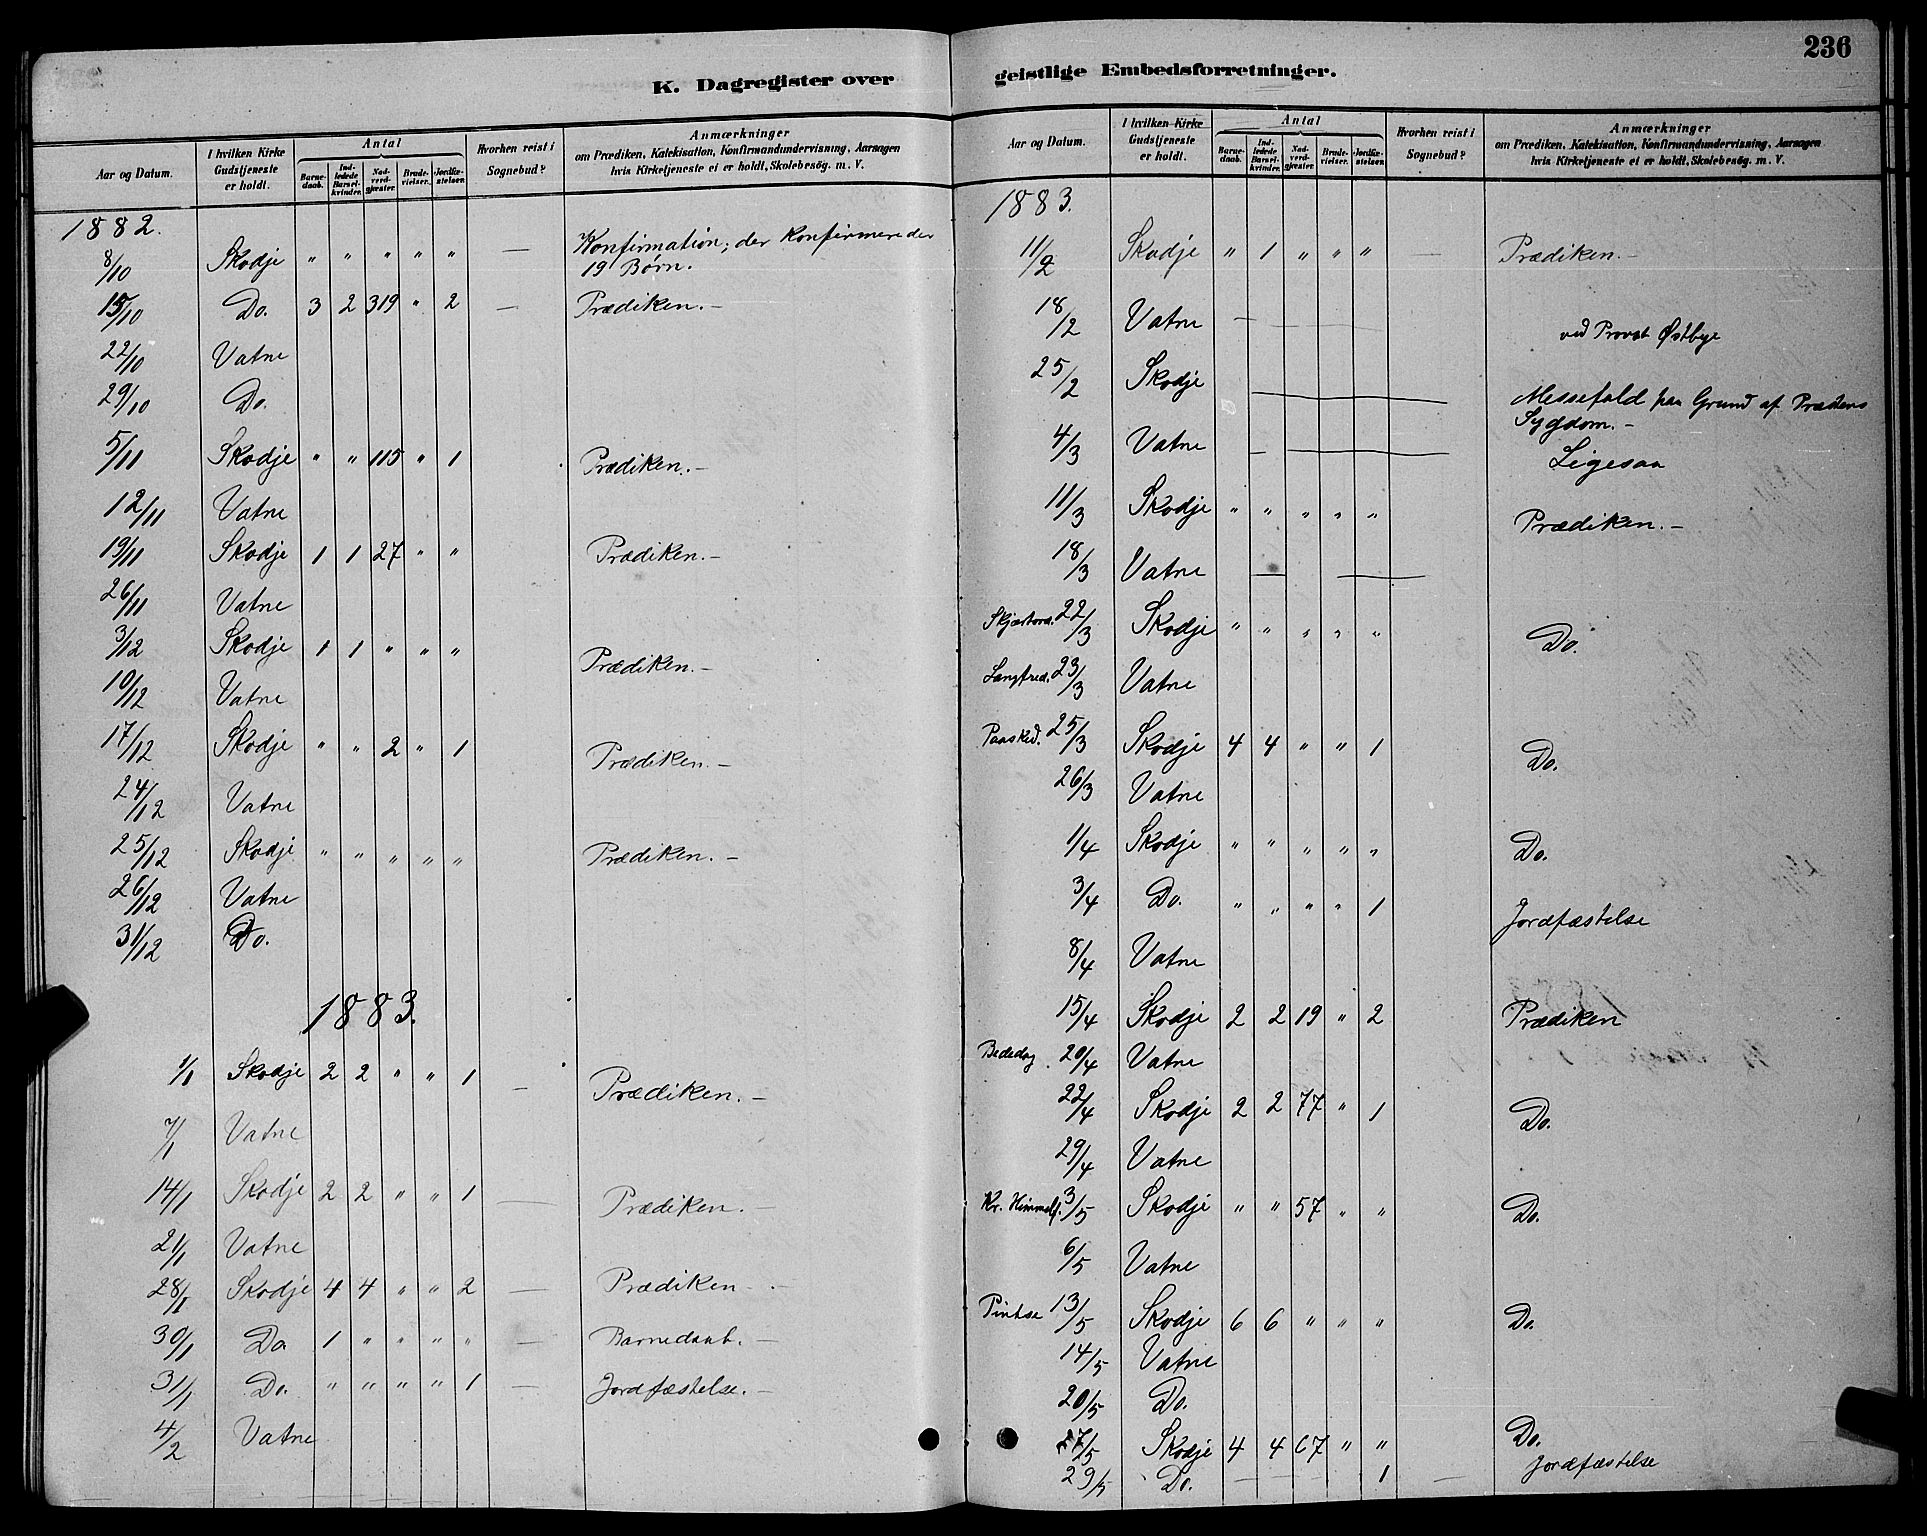 236
K. Dagregister over geistlige Embedsforretninger.
Aar og Datum. | I hvilken Kirke Gudstjeneste er holdt. | Antal | Barne-daab. | Ind-ledede Barsel-kvinder. | Nad-verd-gjæster. | Brude-vielser. | Jordfæ-stelser. | Hvorhen reist i Sognebud? | Anmærkninger om Prædiken, Katekisation, Konfirmandundervisning, Aarsagen hvis Kirketjeneste ei er holdt, Skolebesøg. m. V.
1882.
8/10 Skodje " " " " " — Konfirmation; der konfirmeredes
19 Børn.
15/10 Do. 3 2 319 " 2 — Prædiken.—
22/10 Vatne
29/10 Do.
5/11 Skodje " " 115 " 1 Prædiken.—
12/11 Vatne
19/11 Skodje 1 1 27 " " Prædiken.—
26/11 Vatne
3/12 Skodje 1 1 " " " Prædiken.—
10/12 Vatne
17/12 Skodje " " 2 " 1 Prædiken.—
24/12 Vatne
25/12 Skodje " " " " " Prædiken.—
26/12 Vatne
31/12 Do.
1883.
1/1 Skodje 2 2 " " 1 — Prædiken.—
7/1 Vatne
14/1 Skodje 2 2 " " 1 — Prædiken.—
21/1 Vatne
28/1 Skodje 4 4 " " 2 — Prædiken—
30/1 Do 1 " " " " — Barnedaab.—
31/1 Do. " " " " 1 — Jordfæstelse.—
4/2 Vatne
Aar og Datum. | I hvilken Kirke Gudstjeneste er holdt. | Antal | Barne-daab. | Ind-ledede Barsel-kvinder. | Nad-verd-gjæster. | Brude-vielser. | Jordfæ-stelser. | Hvorhen reist i Sognebud? | Anmærkninger om Prædiken, Katekisation, Konfirmandundervisning, Aarsagen hvis Kirketjeneste ei er holdt, Skolebesøg. m. V.
1883.
11/2 Skodje " 1 " " " — Prædiken.—
18/2 Vatne — ved Provst Østbye
25/2 Skodje — Messefald paa Grund af Præstens
Sygdom.—
4/3 Vatne — Ligesaa
11/3 Skodje " " " " " Prædiken.—
18/3 Vatne — —
Skjærtors. 22/3 Skodje " " " " " Do.
Langfred. 23/3 Vatne
Paasked. 25/3 Skodje 4 4 " " 1 Do.
26/3 Vatne
1/4 Skodje " " " " " Do.
3/4 Do. " " " " 1 Jordfæstelse
8/4 Vatne
15/4 Skodje 2 2 19 " 2 Prædiken
Bededag. 20/4 Vatne
22/4 Skodje 2 2 77 " 1 Do.
29/4 Vatne
Kr. Himmelf. 3/5 Skodje " " 57 " " Do.
6/5 Vatne
Pintse 13/5 Skodje 6 6 " " " Do.
14/5 Vatne
20/5 Do.
27/5 Skodje 4 4 67 " " Do.
29/5 Do. — 1 — Jordfæstelse